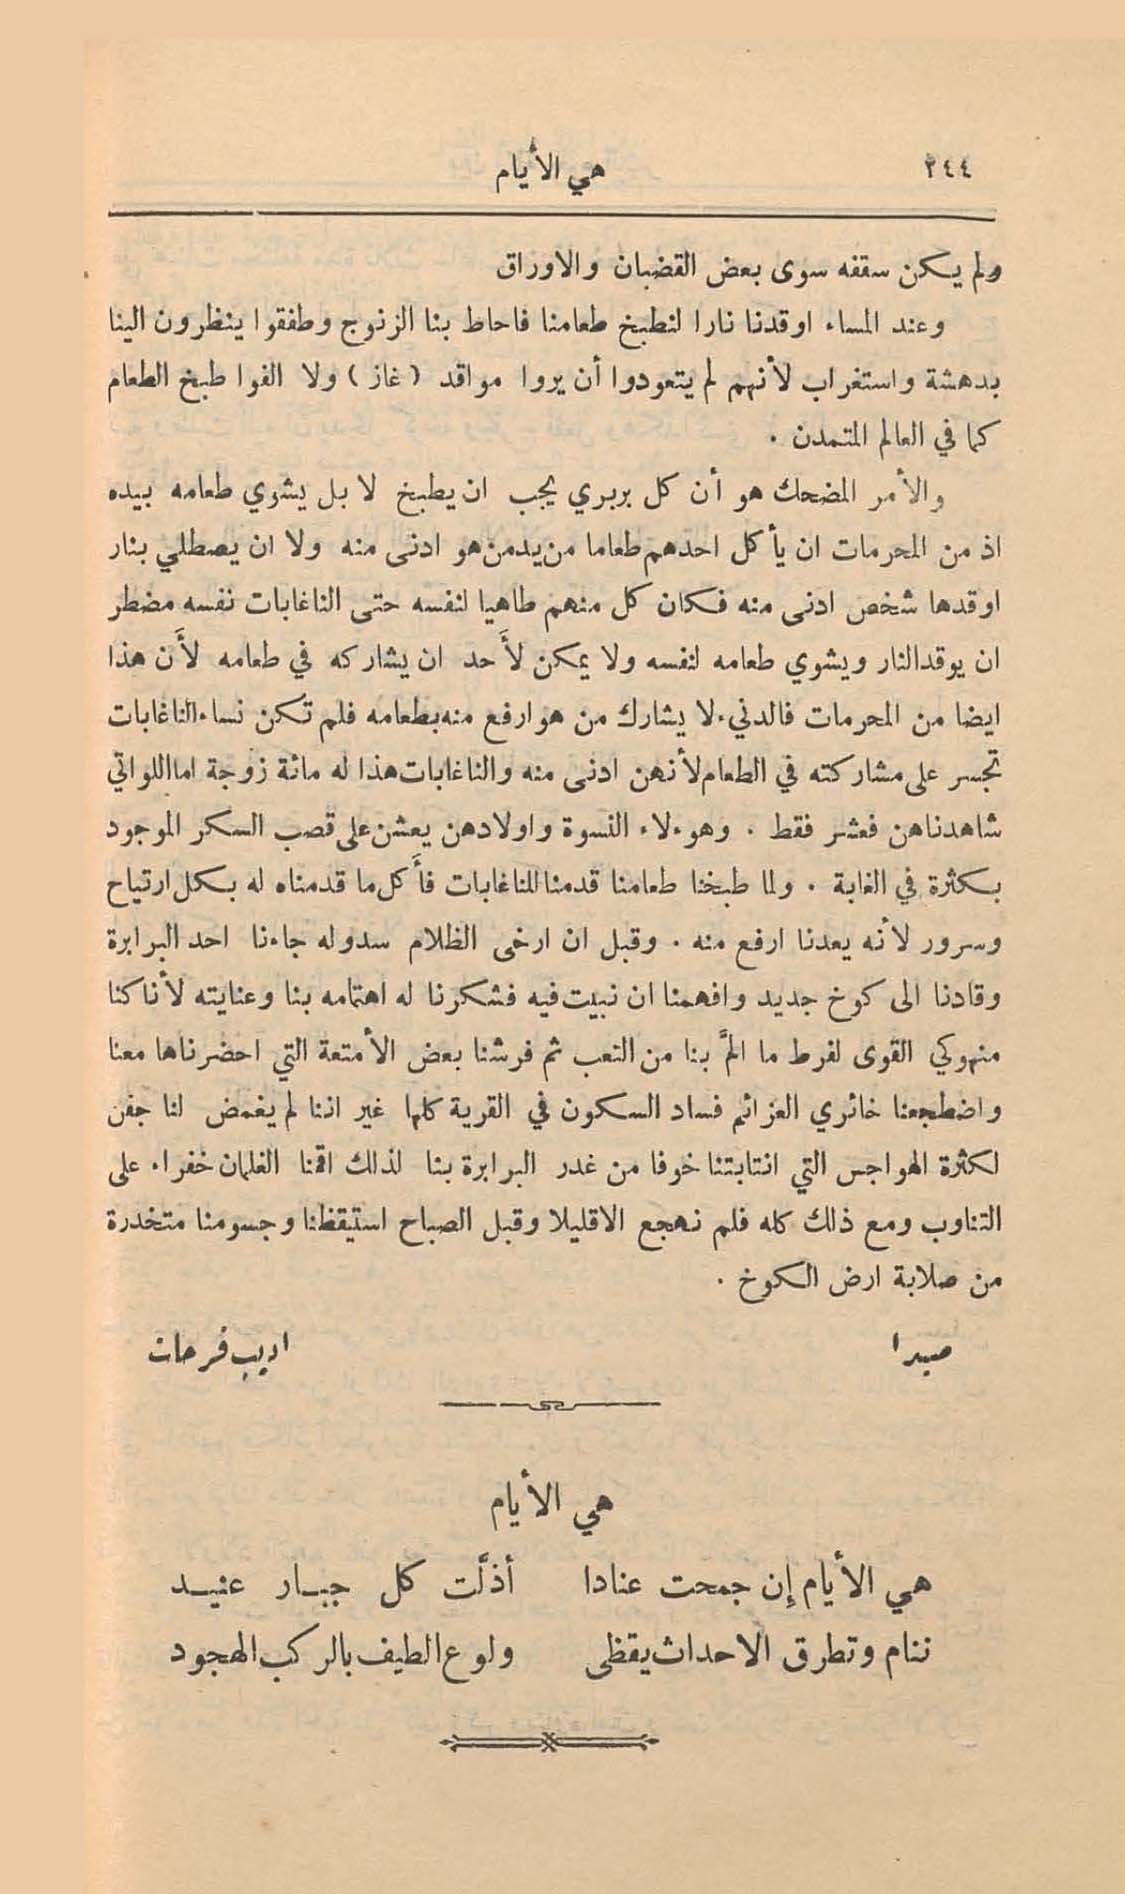 ٢٤٤ هي الأيام
ولم يكن سقفه سوى بعض القضبان والاوراق
وعند المساء اوقدنا نارا لنطبخ طعامنا فاحاط بنا الزنوج وطفقوا ينظرون الينا
بدهشة واستغراب لأنهم لم يتعودوا أن يروا مواقد (غاز) ولا الفوا طبخ الطعام
كما في العالم المتمدن .
والأمر المضحك هو أن كل بربري يجب ان يطبخ لا بل يشوي طعامه بيده
اذ من المحرمات ان يأكل احدهم طعاما من يد من هو ادنى منه ولا ان يصطلي بنار
اوقدها شخص ادنى منه فكان كل منهم طاهيا لنفسه حتى الناغابات نفسه مضطر
ان يوقد النار ويشوي طعامه لنفسه ولا يمكن لأَحد ان يشاركه في طعامه لأَن هذا
ايضا من المحرمات فالدنيء لا يشارك من هو ارفع منه بطعامه فلم تكن نساء الناغابات
تجسر على مشاركته في الطعام لأنهن ادنى منه والناغابات هذا له مائة زوجة اما اللواتي
شاهدناهن فعشر فقط . وهوءلاء النسوة واولادهن يعشن على قصب السكر الموجود
بكثرة في الغابة . ولما طبخنا طعامنا قدمنا للناغابات فأَكل ما قدمناه له بكل ارتياح
وسرور لأنه يعدنا ارفع منه . وقبل ان ارخى الظلام سدوله جاءنا احد البرابرة
وقادنا الى كوخ جديد وافهمنا ان نبيت فيه فشكرنا له اهتمامه بنا وعنايته لأنا كنا
منهوكي القوى لفرط ما المَّ بنا من التعب ثم فرشنا بعض الأمتعة التي احضرناها معنا
واضطجعنا خائري العزائم فساد السكون في القرية كلها غير اننا لم يغمض لنا جفن
لكثرة الهواجس التي انتابتنا خوفا من غدر البرابرة بنا لذلك اقمنا الغلمان خفراء على
التناوب ومع ذلك كله فلم نهجع الا قليلا وقبل الصباح استيقظنا وجسومنا متخدرة
من صلابة ارض الكوخ .
صيدا اديب فرحات
هي الأيام
هي الأيام إن جمحت عنادا أذلَّت كل جبار عنيد
ننام وتطرق الاحداث يقظى ولوع الطيف بالركب الهجود